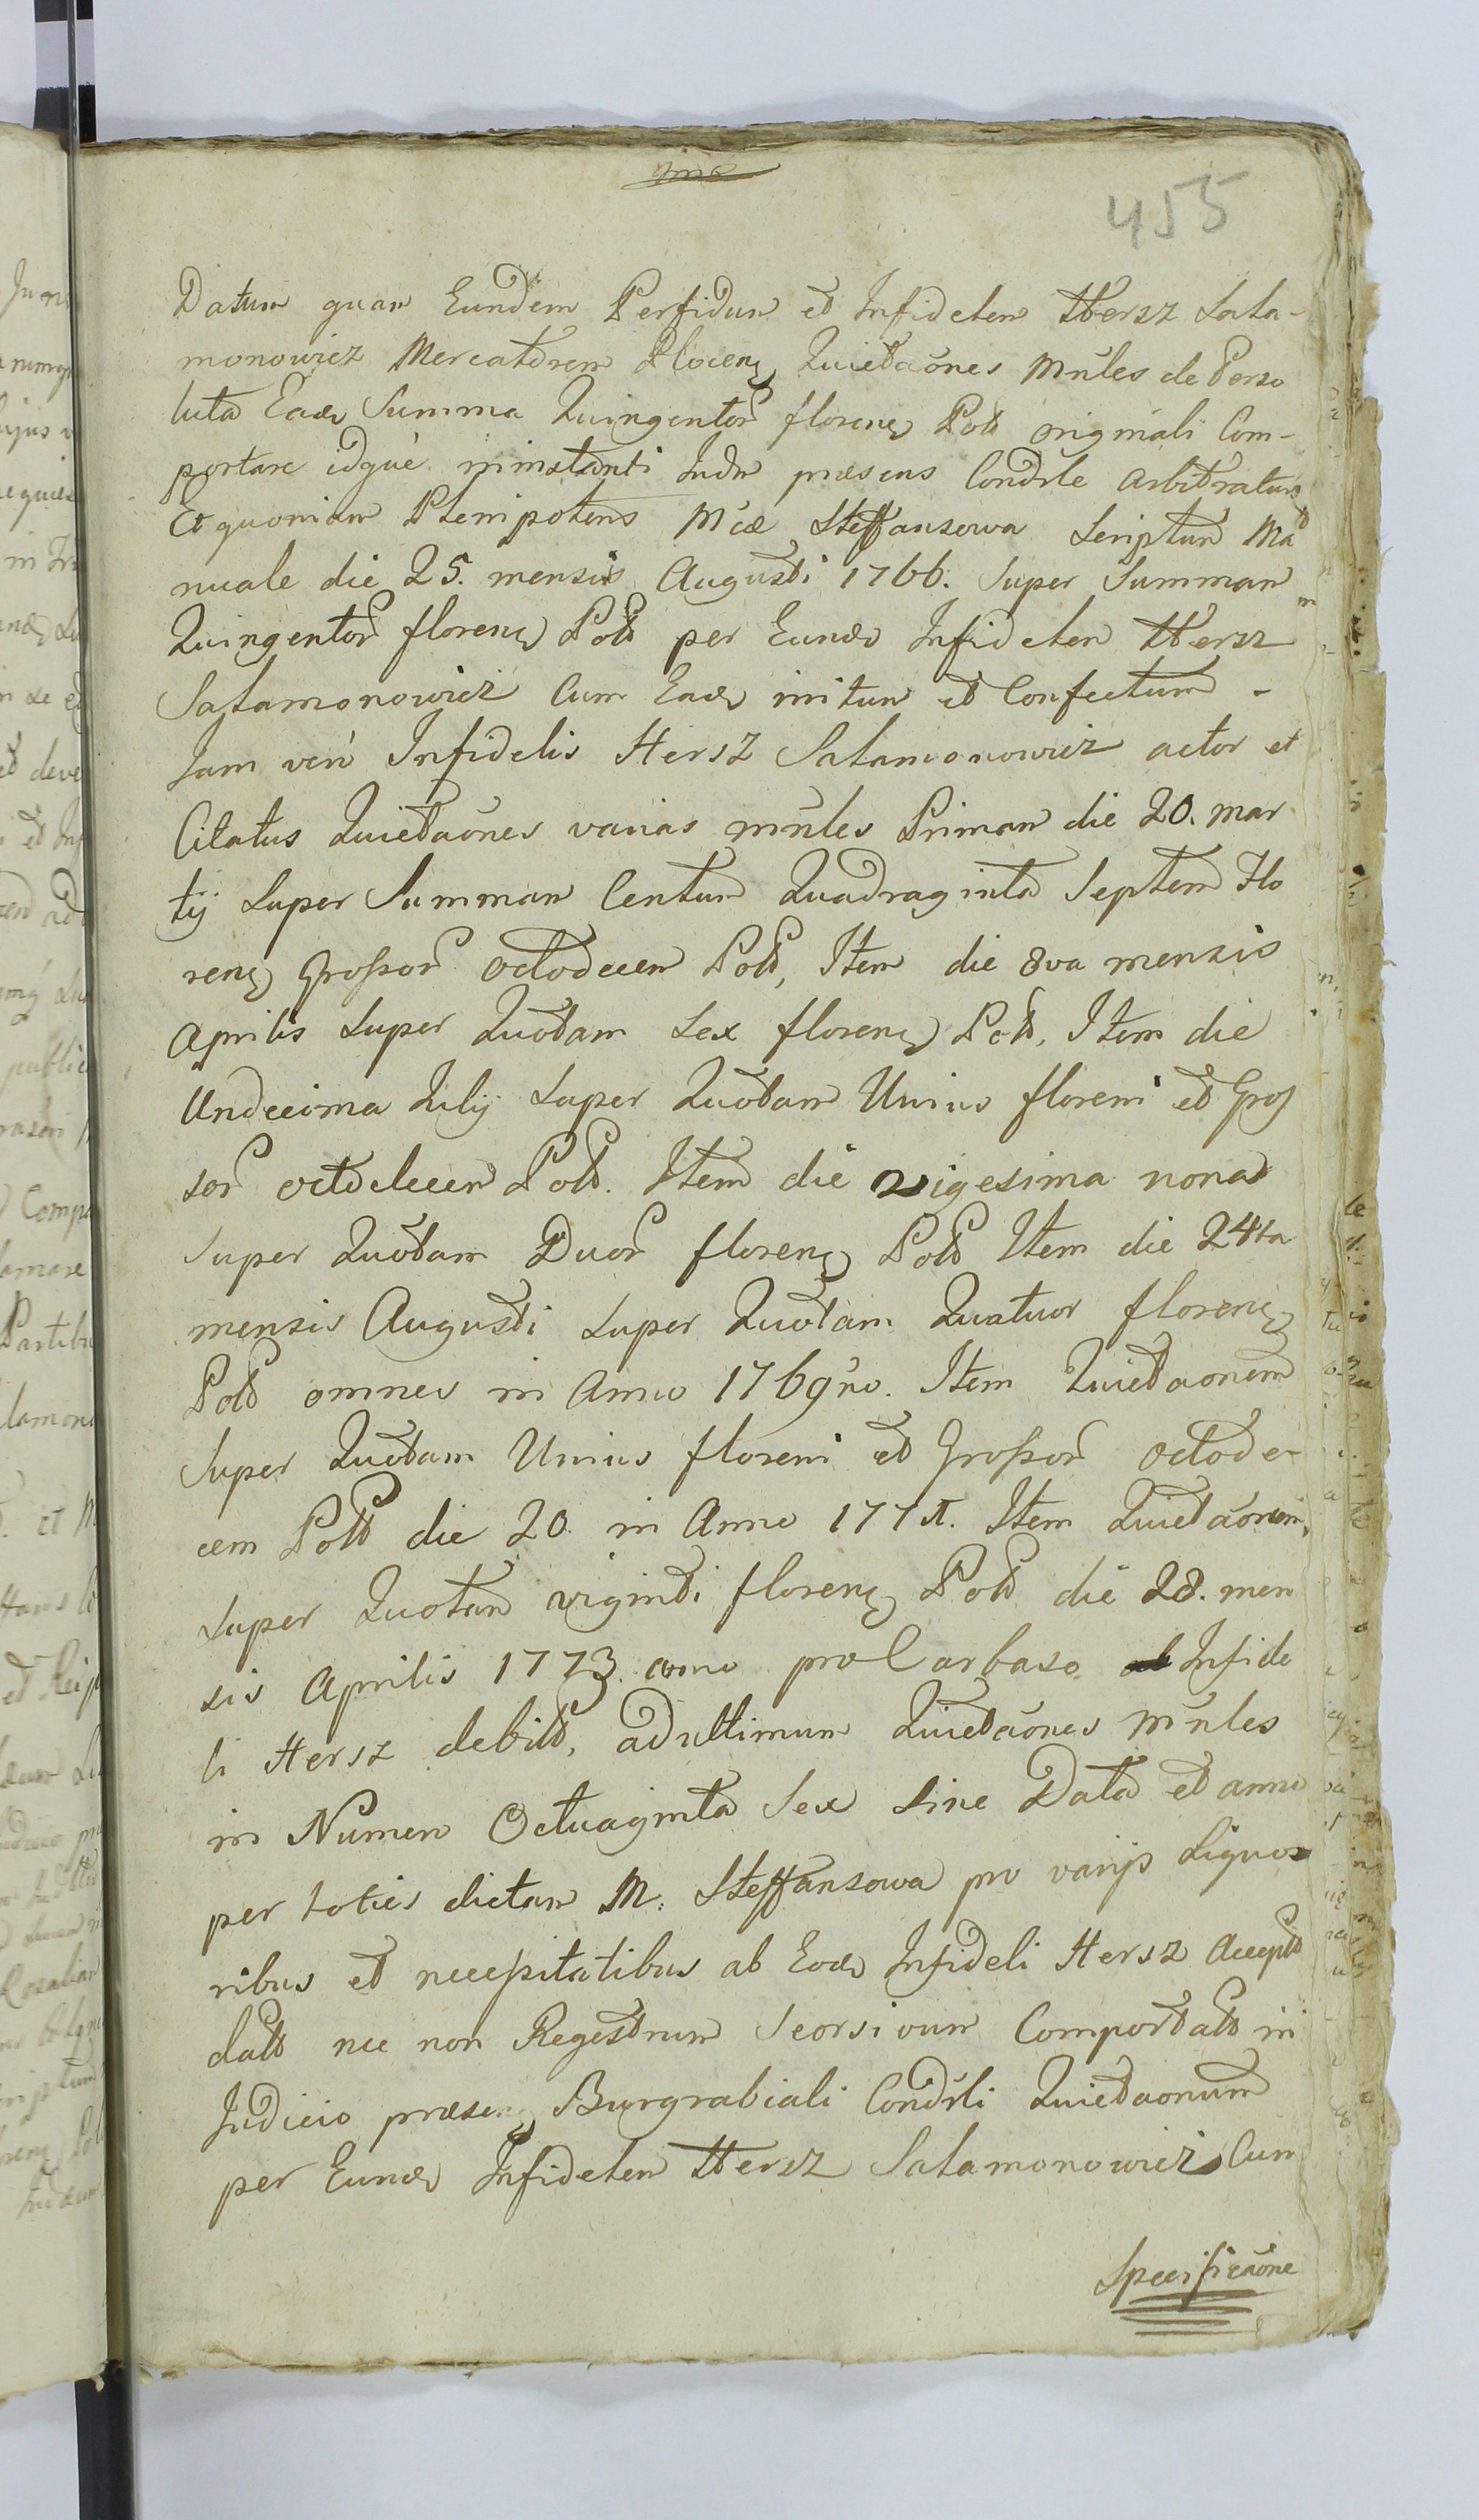 455
Datum quam Eundem Perfidum et Infidelem Hersz Sala-
monowicz Mercatorem Plocen Quietaōnes Mn̄les de Perso
luta Eadē Summa Quingentor florenọ Poło originali Com-
portare idquè in instanti Judm præsens Condr̄le arbitratur
Et quoniam Plenipotens Mcæ Steffansowa Scriptum Ma
nuale die 25. mensis Augusti 1766. Super Summam
Quingentor floren Poll per Eundē Infidelem Hersz
Salamonowicz Cum Eadē initum et Confectum -
Jam verò Infidelis Hersz Salamonowicz actor et
Citatus Quietaōnes varias mn̄les Primam die 20. Mar
tij Super Summam Centum Quadraginta Septem Flo
ren Grossor octodecem Poll, Item die 8va mensis
Aprilis Super Quotam Sex floren Poll, Item die
Undecima Julij Super Quotam Unius floreni et Gros
sor octodecem Poll. Item die vigesima nona
Super Quotam Duor floren Poll Item die 24ta
mensis Augusti Super Quotam Quatuor floren
Poll omnes in Anno 1769no. Item Quietaonem
Super Quotam Unius floreni et Grossor octode-
cem Poll die 20. in Anno 1771. Item Quietaōnem
Super Quotam viginti floren Poll die 28. men
sis Aprilis 1773. anno pro Carbaso Infide
li Hersz debit, ad ultimum Quietaōnes mn̄les
in Numero Octuaginta Sex Sine Data et anno
per toties dictam M. Steffansowa pro varijs Liquo
ribus et necessitatibus ab Eodē Infideli Hersz Accept
datt nec non Regestrum Seorsivum Comportatt in
Judicio præsen Burgrabiali Condr̄li Quietaonum
per Eundē Infidelem Hersz Salamonowicz Cum
Specificaōne